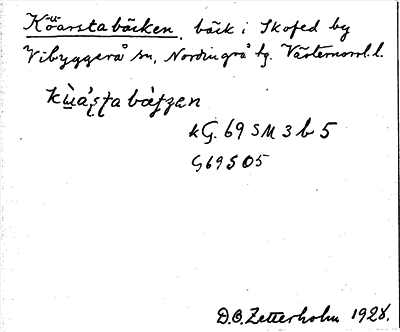 Köarstabäcken, bäck i Skofed by
Vibyggerå sn, Nordingrå tg. Västernorrl. l.
kùástabàtzen
kG. 69 SM 3 b 5
G69505
D.O. Zetterholm 1928.